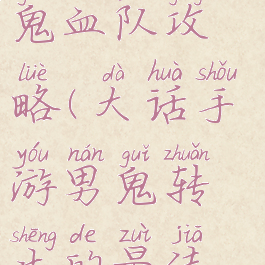 鬼血队攻
lüè dà huà shǒu
略(大话手
yóu nán guǐ zhuǎn
游男鬼转
shēng de zuì jiā
生的最佳